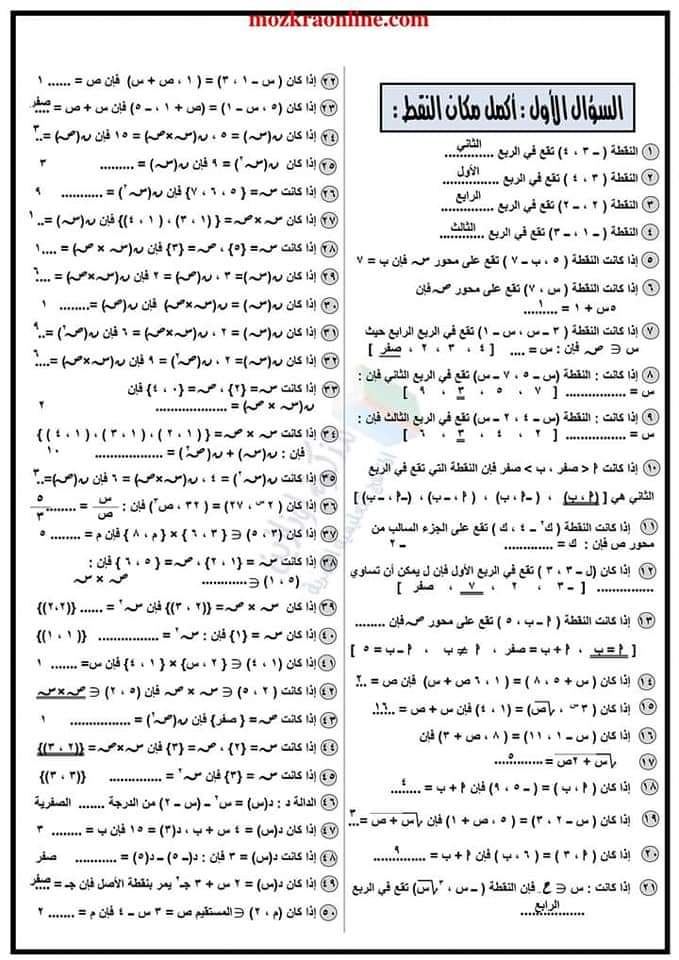 mozkraonline.com
السؤال الأول : أكمل مكان النقط :
١ النقطة ( – ٣ ، ٤ ) تقع في الربع الثاني .............
٢ النقطة ( ٣ ، ٤ ) تقع في الربع الأول .............
٣ النقطة ( ٢ ، – ٢ ) تقع في الربع الرابع .............
٤ النقطة ( – ١ ، – ٣ ) تقع في الربع الثالث ............
٥ إذا كانت النقطة ( ٥ ، ب – ٧ ) تقع على محور س فإن ب = ٧
٦ إذا كانت النقطة ( س ، ٧ ) تقع على محور ص فإن
٥س + ١ = ....١....
٧ إذا كانت النقطة ( ٣ – س ، س – ١ ) تقع في الربع الرابع حيث
س ∋ ص فإن : س = .... [ ٤ ، ٣ ، ٢ ، صفر ]
٨ إذا كانت : النقطة ( س – ٥ ، ٧ – س ) تقع في الربع الثاني فإن :
س = ............... [ ٧ ، ٥ ، ٣ ، ٩ ]
٩ إذا كانت : النقطة ( س – ٤ ، ٢ – س ) تقع في الربع الثالث فإن :
س = ............... [ ٢ ، ٤ ، ٣ ، ٦ ]
١٠ إذا كانت أ < صفر ، ب > صفر فإن النقطة التي تقع في الربع
الثاني هي [ (أ ، ب) ، (–أ ، ب) ، (–أ ، –ب) ، (أ ، –ب) ]
١١ إذا كانت النقطة ( ك٢ – ٤ ، ك ) تقع على الجزء السالب من
محور ص فإن : ك = ............ – ٢
١٢ إذا كان ( ل – ٣ ، ٣ ) تقع في الربع الأول فإن ل يمكن أن تساوي
............... [ – ٣ ، ٢ ، ٧ ، صفر ]
١٣ إذا كانت النقطة ( أ – ب ، ٥ ) تقع على محور ص فإن ........
[ أ = ب ، أ + ب = صفر ، أ ≠ ب ، أ – ب = ٥ ]
١٤ إذا كان ( س + ٥ ، ٨ ) = ( ١ ، ٦ ص + س ) فإن ص = ..٢
١٥ إذا كان ( ٣س ، √ص ) = ( ١ ، ٤ ) فإن س + ص = ..١٦...
١٦ إذا كان ( س – ١ ، ١١ ) = ( ٨ ، ص + ٣ ) فإن
١٧ √س + ٢ص = .....٥.....
١٨ إذا كان ( أ ، ب ) = ( – ٥ ، ٩ ) فإن أ + ب = ....٤....
١٩ إذا كان ( س – ٢ ، ٣ ) = ( ٥ ، ص + ١ ) فإن √س + ص = ..٣
٢٠ إذا كان ( أ ، ٣ ) = ( ٦ ، ب ) فإن أ + ب = ....٩.....
٢١ إذا كانت : س ∋ ع فإن النقطة ( – س ، ٣√س ) تقع في الربع
الرابع ................
٢٢ إذا كان ( س – ١ ، ٣ ) = ( ١ ، ص + س ) فإن ص = ...... ١
٢٣ إذا كان ( ٥ ، س – ١ ) = ( ص + ١ ، – ٥ ) فإن س + ص = صفر....
٢٤ إذا كان ن(س) = ٥ ، ن(س×ص) = ١٥ فإن ن(ص) = ..٣
٢٥ إذا كان ن(س٢) = ٩ فإن ن(س) = ......... ٣
٢٦ إذا كانت س = { ٥ ، ٦ ، ٧ } فإن ن(س٢) = .......... ٩
٢٧ إذا كان س × ص = { ( ١ ، ٣ ) ، ( ١ ، ٤ ) } فإن ن(س) = ..١
٢٨ إذا كان س = {٥} ، ص = {٣} فإن ن(س × ص) = ....١
٢٩ إذا كان ن(س) = ٣ ، ن(ص) = ٢ فإن ن(س×ص) = ....٦
٣٠ إذا كان ن(س × ص) = ن(ص) فإن ن(س) = ........ ١
٣١ إذا كان ن(س) = ٢ ، ن(س×ص) = ٦ فإن ن(ص٢) = ..٩
٣٢ إذا كان ن(س) = ٢ ، ن(ص٢) = ٩ فإن ن(س×ص) = ....٦
٣٣ إذا كانت س = {٢} ، ص = {٠ ، ٤} فإن
ن(س × ص) = .................. ٢
٣٤ إذا كانت س × ص = { ( ١ ، ٢ ) ، ( ١ ، ٣ ) ، ( ١ ، ٤ ) }
فإن : ن(س) + ن(ص٢) = ................. ١٠
٣٥ إذا كان ن(س٢) = ٤ ، ن(س×ص) = ٦ فإن ن(ص) = ..٣
٣٦ إذا كان ( ٢س ، ٢٧ ) = ( ٣٢ ، ص٣ ) فإن : س/ص = ....... ٥/٣
٣٧ إذا كان ( ٣ ، ٥ ) ∋ { ٣ ، ٦ } × { م ، ٨ } فإن م = ....... ٥
٣٨ إذا كان س = { ١ ، ٢ } ، ص = { ٥ ، ٦ } فإن :
( ٥ ، ١ ) ∋ ............ ص × س
٣٩ إذا كان س × ص = { ( ٢ ، ٣ ) } فإن س٢ = ...... {(٢،٢)}
٤٠ إذا كان س = {١} فإن : س٢ = ................ {( ١ ، ١ )}
٤١ إذا كان ( ١ ، ٤ ) ∋ { ٢ ، س } × { ١ ، ٤ } فإن س = ...... ١
٤٢ إذا كانت ( ٢ ، ٥ ) ∋ س × ص فإن ( ٥ ، ٢ ) ∋ ص×س
٤٣ إذا كانت ص = { صفر } فإن ن(ص٢) = ............... ١
٤٤ إذا كانت س = {٢} ، ص = {٣} فإن س×ص = {( ٢ ، ٣ )}
٤٥ إذا كانت س = {٣} فإن س٢ = ............. {( ٣ ، ٣ )}
٤٦ الدالة د : د(س) = س٢ – (س – ٢) من الدرجة ....... الصفرية
٤٧ إذا كان د(س) = ٤ س + ب ، د(٣) = ١٥ فإن ب = ....... ٣
٤٨ إذا كان د(س) = ٣ فإن : د(– ٥) – د(٥) = .......... صفر
٤٩ إذا كان د(س) = ٢ س + ٣ جـ يمر بنقطة الأصل فإن جـ = صفر....
٥٠ إذا كان ( م ، ٢ ) ∋ المستقيم ص = ٣ س – ٤ فإن م = ....... ٢